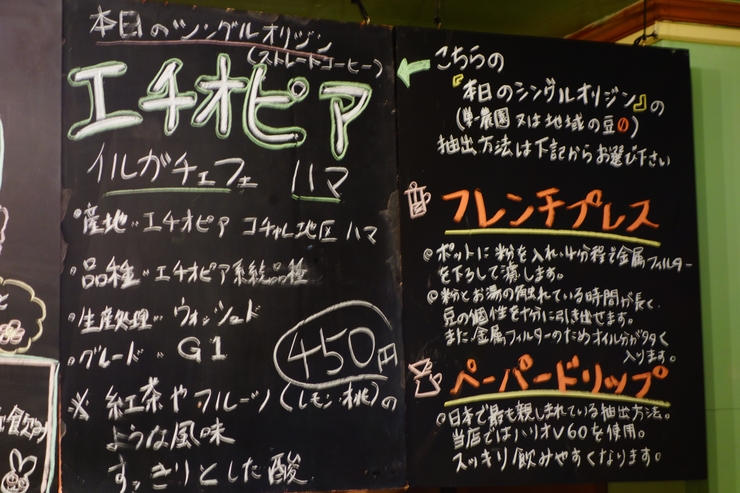 本日のシングルオリジン
(ストレートコーヒー)
エチオピア
イルガチェフェ ハマ
・産地‥エチオピア コチャレ地区 ハマ
・品種‥エチオピア系統品種
・生産処理‥ウォッシュド
・グレード‥G1
450円
※紅茶やフルーツ(レモン・桃)の
ような風味
すっきりとした酸
こちらの
『本日のシングルオリジン』の
(単一農園又は地域の豆の)
抽出方法は下記からお選び下さい
フレンチプレス
◎ポットに粉を入れ、4分程で金属フィルター
を下ろして漉します。
◎粉とお湯の触れている時間が長く、
豆の個性を十分に引き出せます。
また、金属フィルターのためオイル分が多く
入ります。
ペーパードリップ
◎日本で最も親しまれている抽出方法。
当店ではハリオV60を使用。
スッキリ飲みやすくなります。